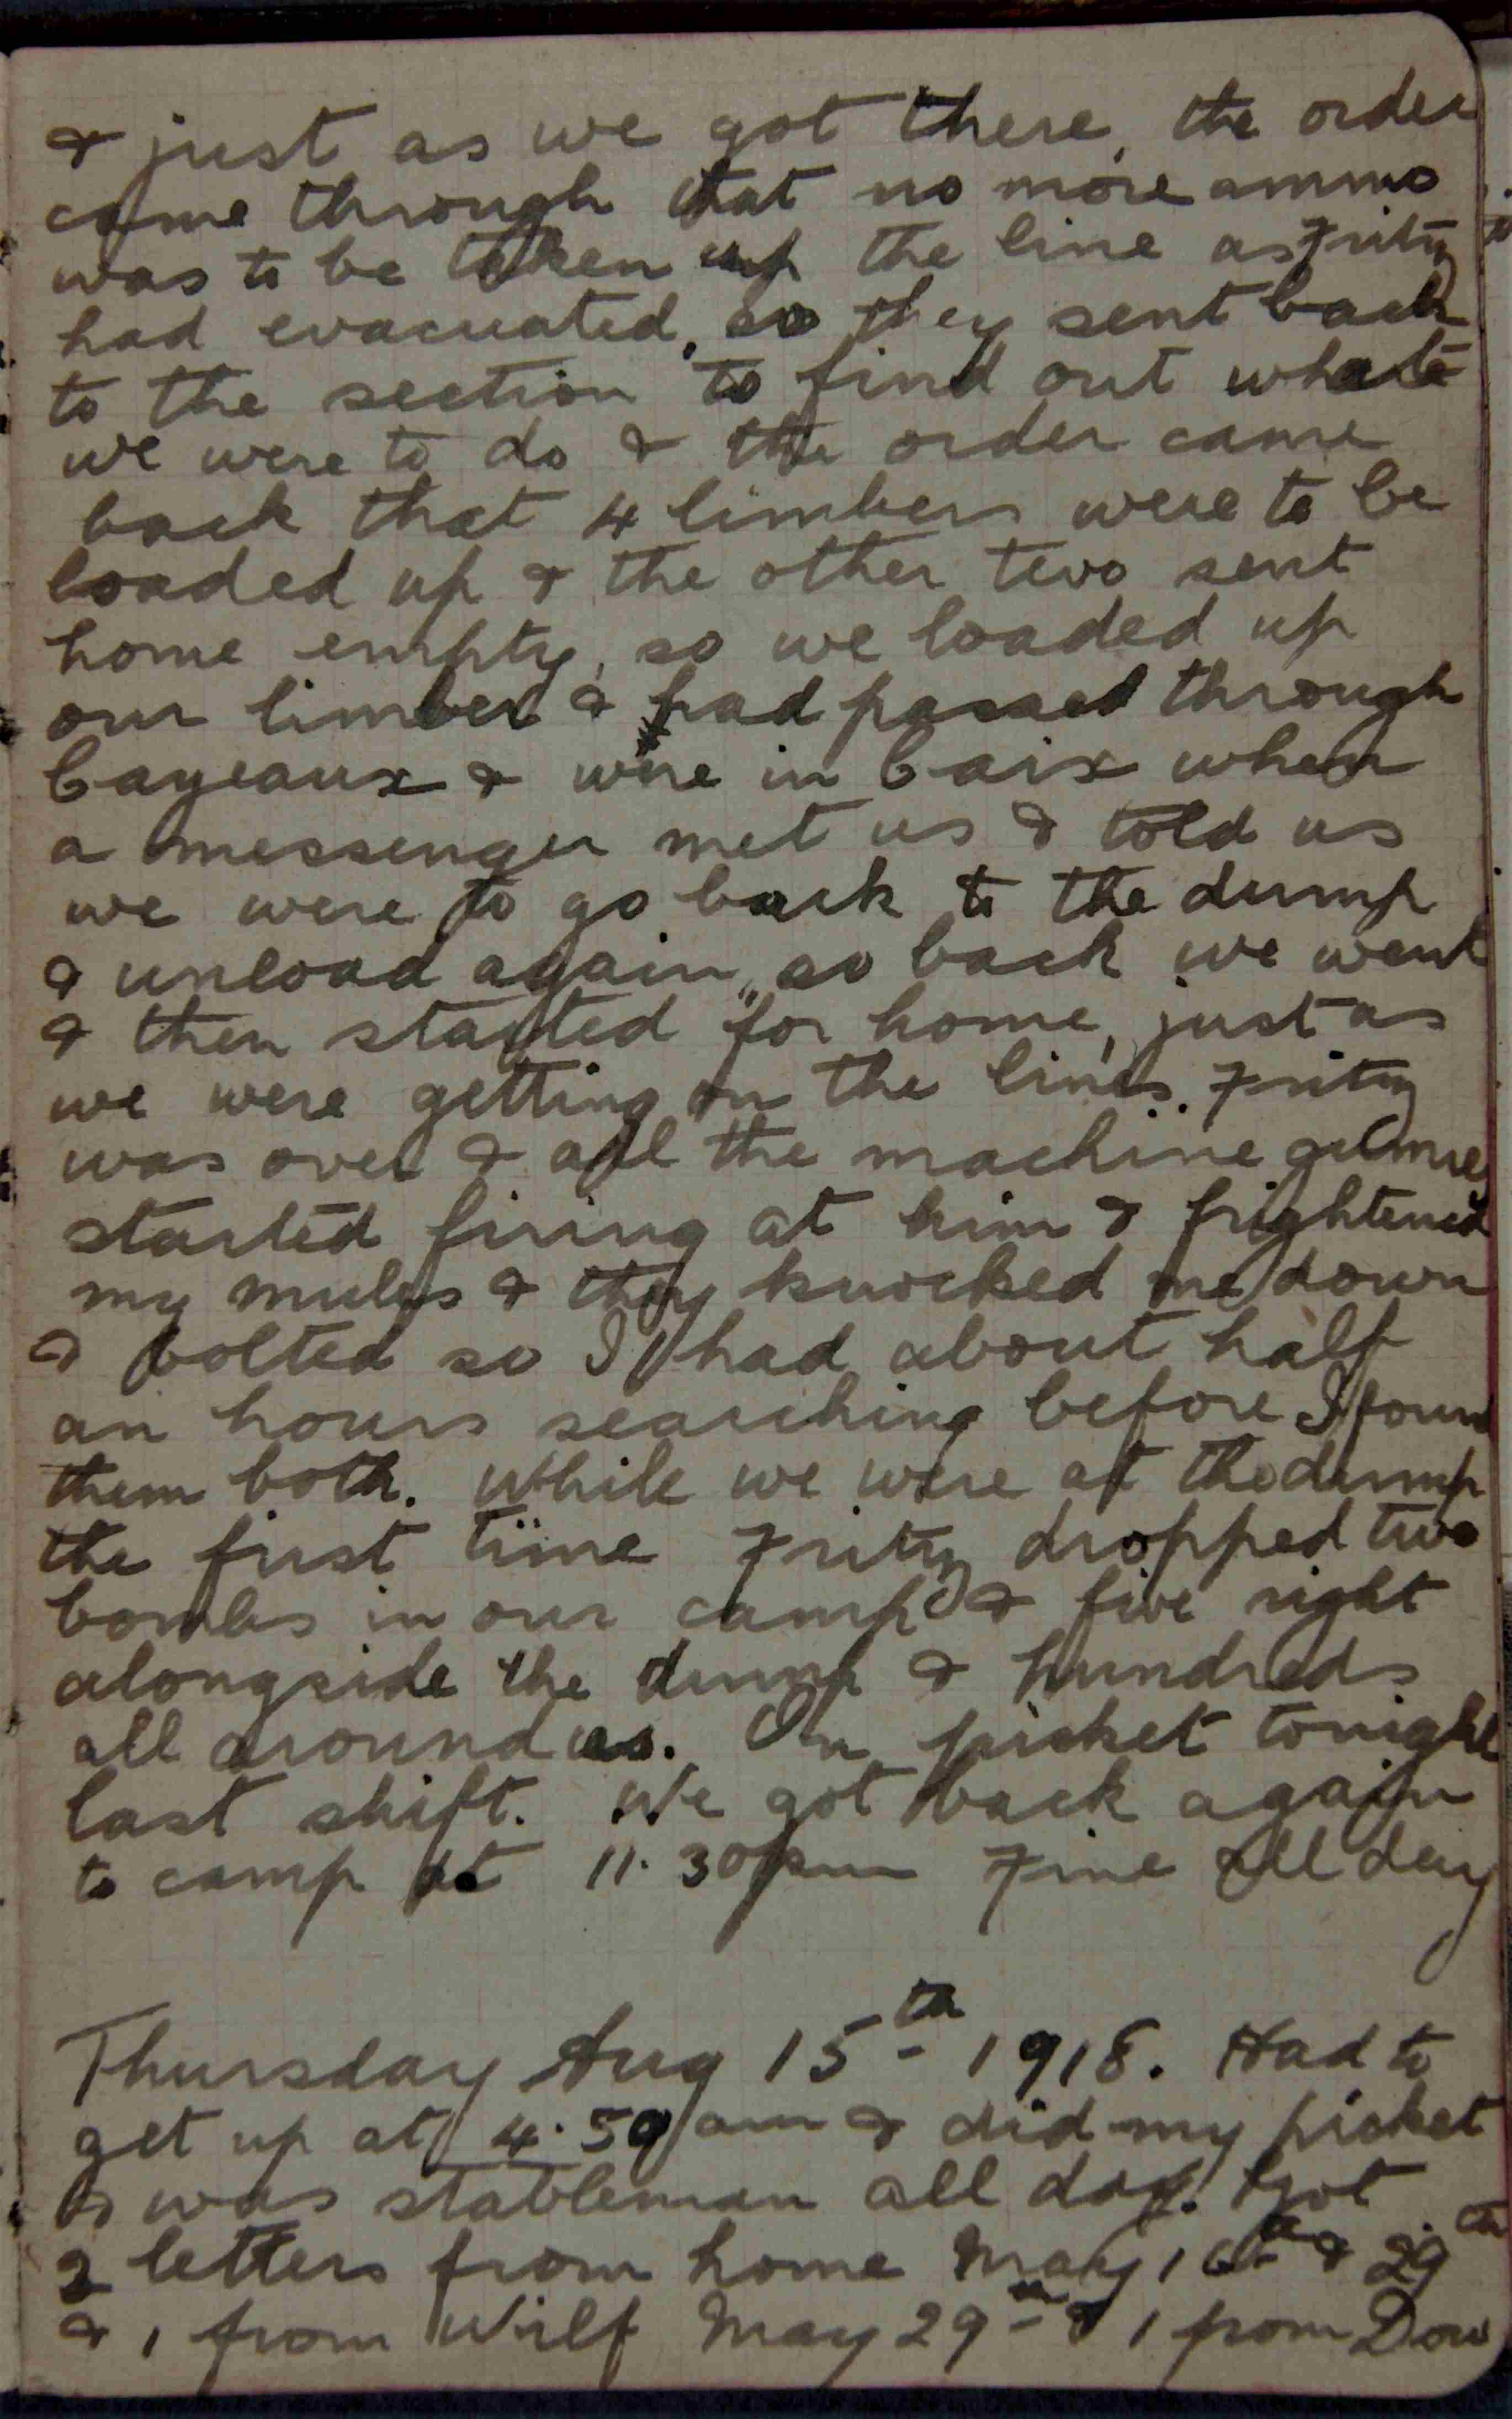 & just as we got there, the order
came through that no more ammo
was to be taken up the line as Fritz
had evacuated, so they sent back
to the section to find out what
we were to do & the order came
back that 4 limbers were to be
loaded up & the other two sent
home empty, so we loaded up
our limber & had passed through
Bayeaux & were in Baix when
a messenger met us & told us
we were to go back to the dump
& unload again, so back we went
& then started for home, just as
we were getting on the lines. Fritz
was over & all the machine
started firing at him & frightened
my mules & they knocked me down
& bolted so I had about half
an hours searching before I found
them both. While we were at the dump
the first time Fritz dropped two
bombs in our camp & five right
alongside the dump & hundreds
all around us. On picket tonight
last shift. We got back again
to camp at 11.30pm Fine all day
Thursday Aug 15th 1918. Had to
get up at 4.50 am & did my picket
& was stableman all day. Got
2 letters from home May & 29th
& 1 from Wilf May 29th & 1 from Dow